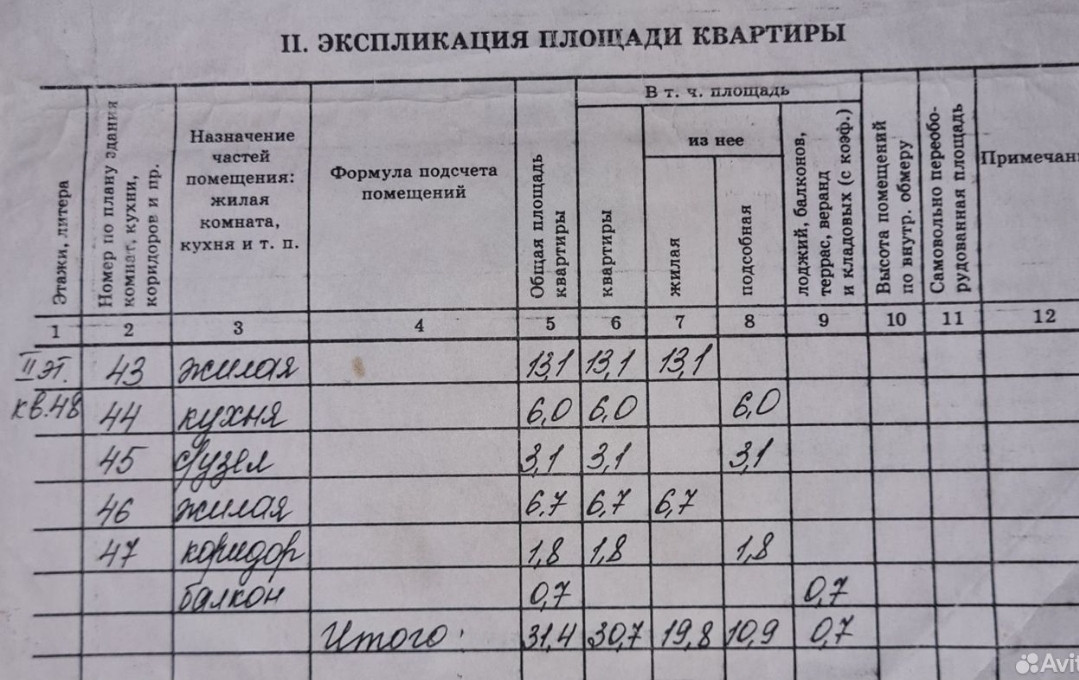 II. ЭКСПЛИКАЦИЯ ПЛОЩАДИ КВАРТИРЫ
Этажи, литера
Номер по плану здания комнат, кухни, коридоров и пр.
Назначение
частей
помещения:
жилая
комната,
кухня и т. п.
Формула подсчета
помещений
Общая площадь
квартиры
В т. ч. площадь
квартиры
из нее
жилая
подсобная
лоджий, балконов,
террас, веранд
и кладовых (с коэф.)
Высота помещений
по внутр. обмеру
Самовольно переобо-
рудованная площадь
Примечан
1 2 3 4 5 6 7 8 9 10 11 12
II эт. 43 жилая 13,1 13,1 13,1
кв.48 44 кухня 6,0 6,0 6,0
45 с/узел 3,1 3,1 3,1
46 жилая 6,7 6,7 6,7
47 коридор 1,8 1,8 1,8
балкон 0,7 0,7
Итого: 31,4 30,7 19,8 10,9 0,7
Avit